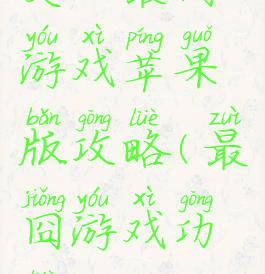 yóu xì píng guǒ
游戏苹果
bǎn gōng lüè zuì
版攻略(最
jiǒng yóu xì gōng
囧游戏功